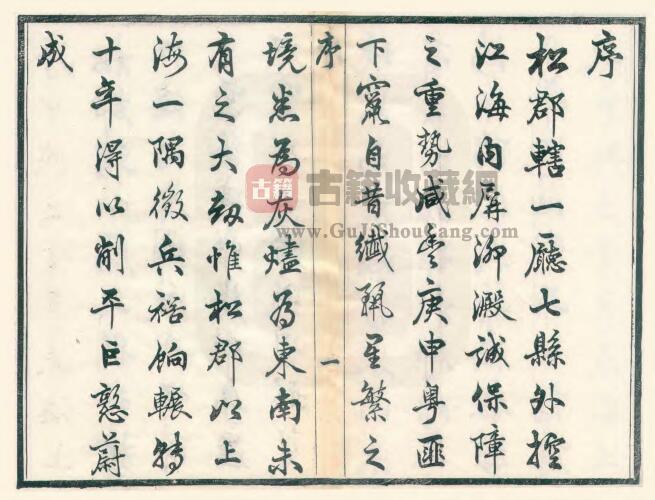 序
松郡轄一廳七縣外控
江海內屏泖澱誠保障
之重勢咸豐庚申粵匪
下竄自昔纖麗星繁之
序
一
境悉為灰燼為東南未
有之大劫惟松郡以上
海一隅徵兵裕餉輾轉
十年得以削平巨憝蔚
成
古籍
古籍收藏網
www.GuJiShouCang.com